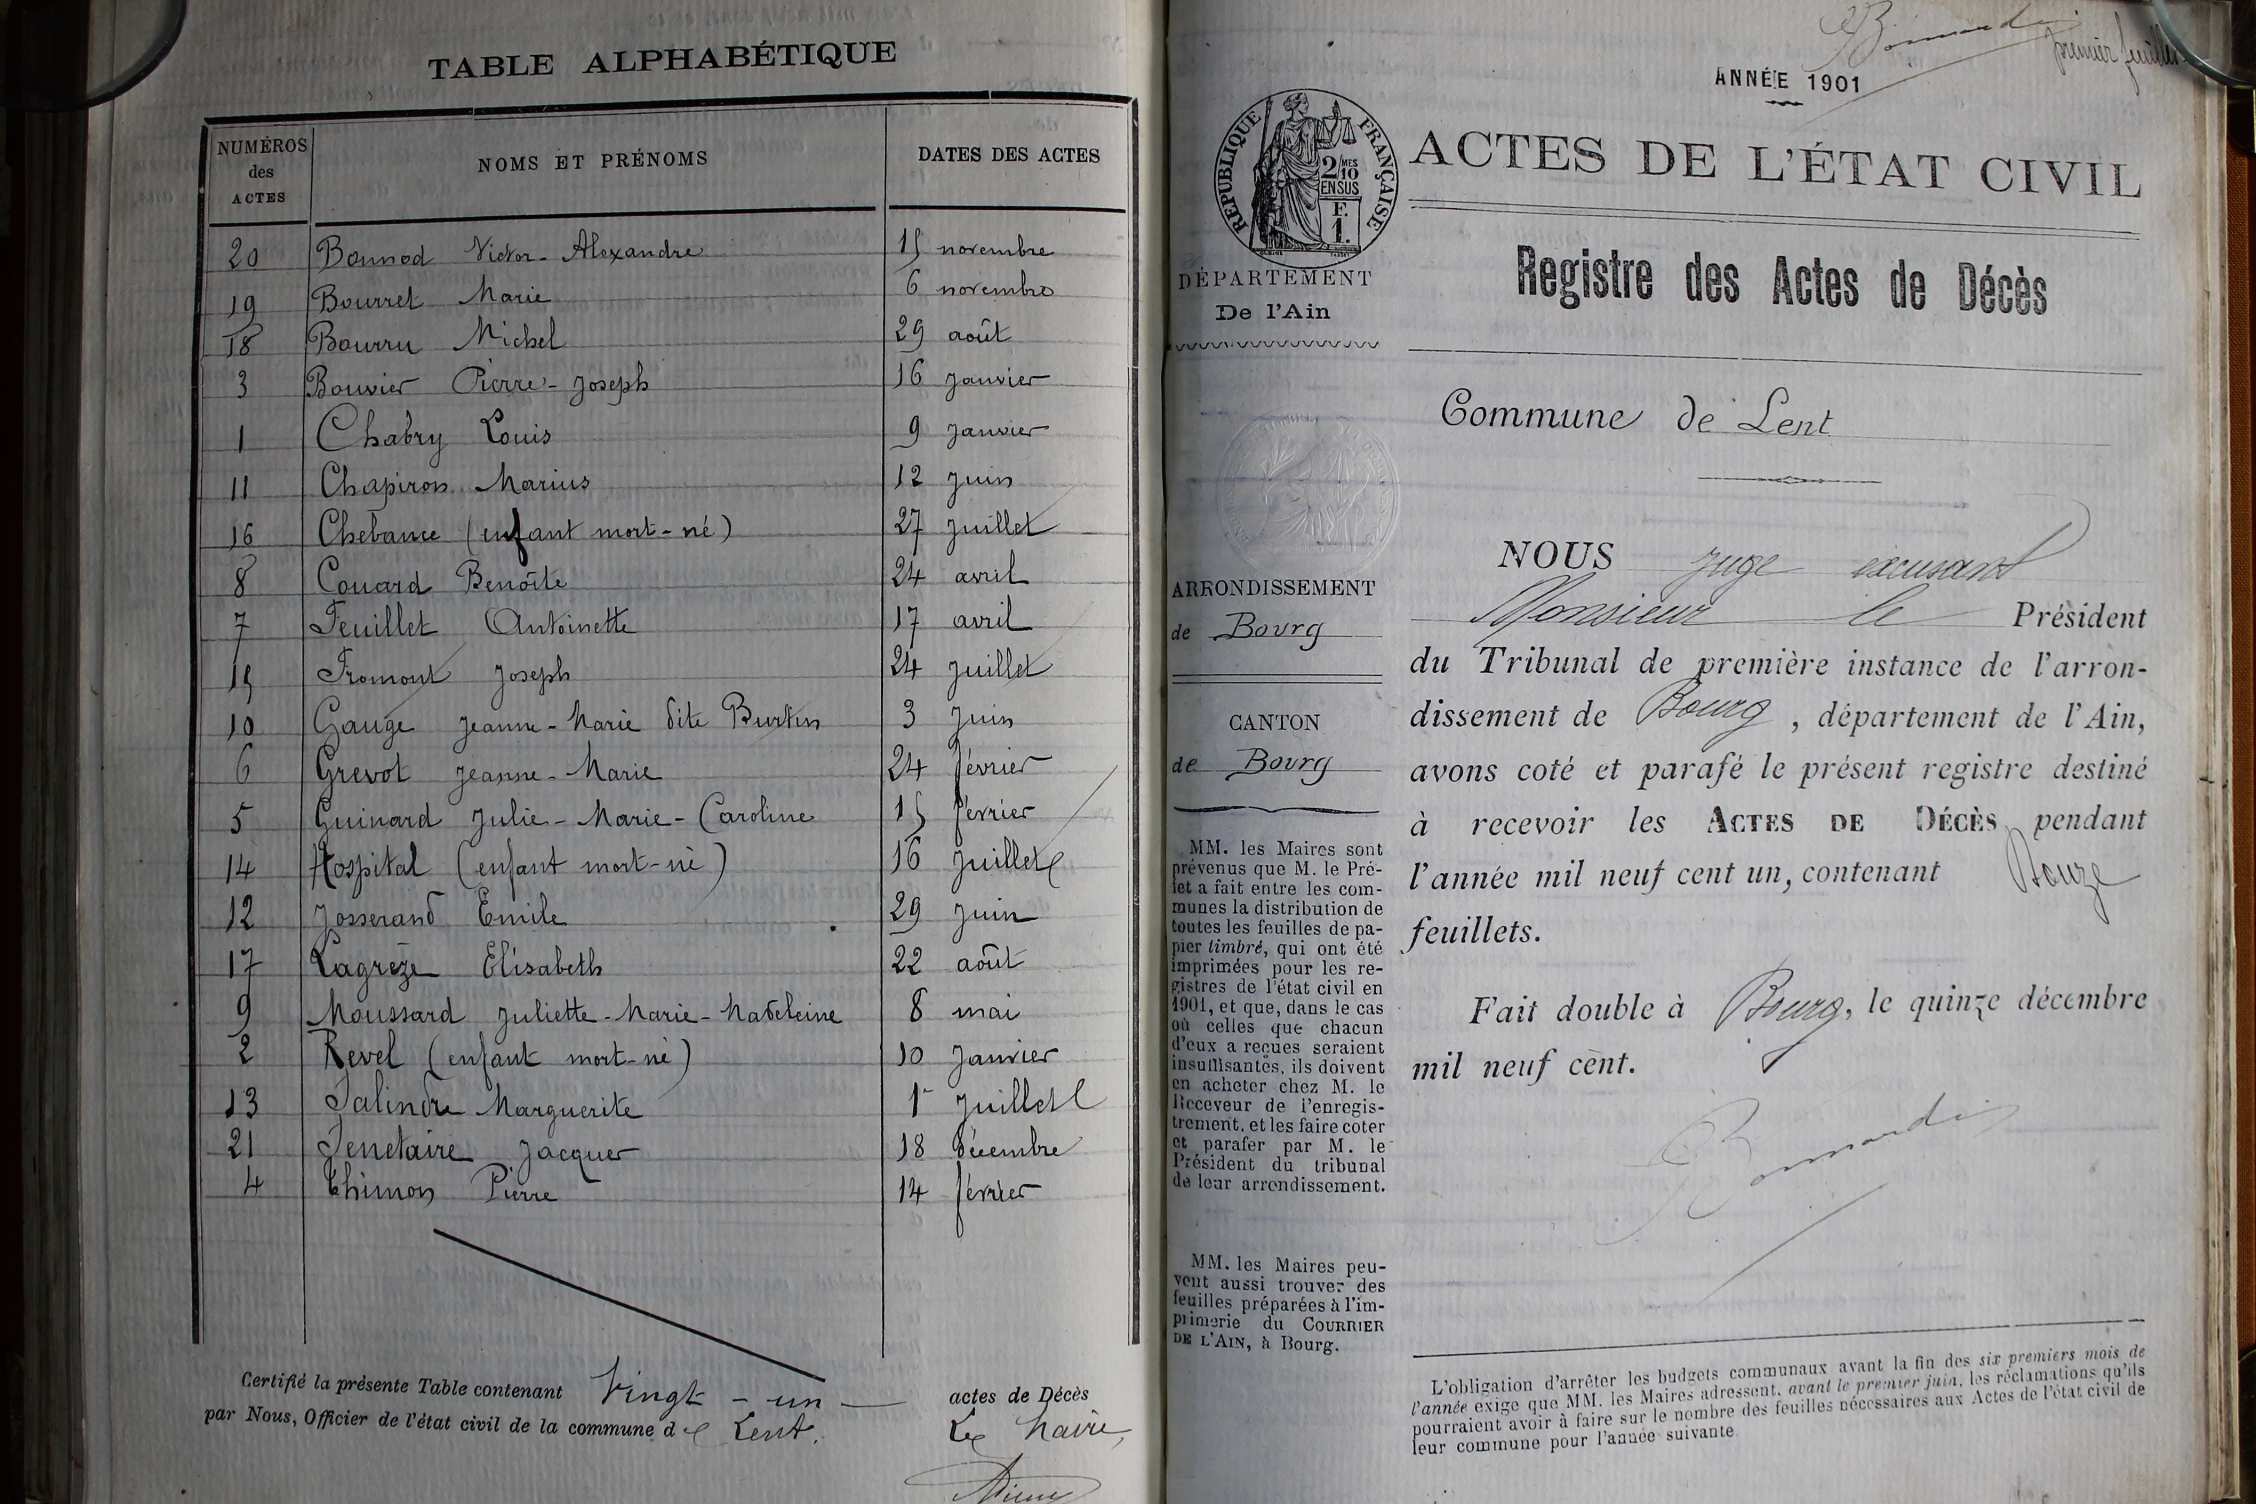 TABLE ALPHABÉTIQUE
NUMÉROS des ACTES NOMS ET PRÉNOMS DATES DES ACTES
20 Bonnod Victor-Alexandre 15 novembre
19 Bourret Marie 6 novembre
18 Bourru Michel 29 août
3 Bouvier Pierre-Joseph 16 janvier
1 Chabry Louis 9 janvier
11 Chapiron Marius 12 juin
16 Chebance (enfant mort-né) 27 juillet
8 Couard Benoîte 24 avril
7 Feuillet Antoinette 17 avril
15 Fromont Joseph 24 juillet
10 Gauge Jeanne-Marie dite Burtin 3 juin
6 Grevot Jeanne-Marie 24 février
5 Guinard Julie-Marie-Caroline 15 février
14 Hospital (enfant mort-né) 16 juillet
12 Josserand Emile 29 juin
17 Lagrèze Elisabeth 22 août
9 Moussard Juliette-Marie-Madeleine 8 mai
2 Revel (enfant mort-né) 10 janvier
13 Salindre Marguerite 1r juillet
21 Senetaire Jacques 18 décembre
4 Thimon Pierre 14 février
Certifié la présente Table contenant Vingt-un actes de Décès
par Nous, Officier de l'état civil de la commune de Lent.
Le Maire,
premier feuillet
ANNÉE 1901
RÉPUBLIQUE FRANÇAISE
2/10 MES
EN SUS
F.
1.
ACTES DE L'ÉTAT CIVIL
DÉPARTEMENT
De l'Ain
Registre des Actes de Décès
Commune de Lent
ARRONDISSEMENT
de Bourg
CANTON
de Bourg
MM. les Maires sont
prévenus que M. le Pré-
fet a fait entre les com-
munes la distribution de
toutes les feuilles de pa-
pier timbré, qui ont été
imprimées pour les re-
gistres de l'état civil en
1901, et que, dans le cas
où celles que chacun
d'eux a reçues seraient
insuffisantes, ils doivent
en acheter chez M. le
Receveur de l'enregis-
trement, et les faire coter
et parafer par M. le
Président du tribunal
de leur arrondissement.
MM. les Maires peu-
vent aussi trouver des
feuilles préparées à l'im-
primerie du COURRIER
DE L'AIN, à Bourg.
NOUS juge excusant
Monsieur le Président
du Tribunal de première instance de l'arron-
dissement de Bourg, département de l'Ain,
avons coté et parafé le présent registre destiné
à recevoir les ACTES DE DÉCÈS pendant
l'année mil neuf cent un, contenant Douze
feuillets.
Fait double à Bourg, le quinze décembre
mil neuf cent.
L'obligation d'arrêter les budgets communaux avant la fin des six premiers mois de
l'année exige que MM. les Maires adressent, avant le premier juin, les réclamations qu'ils
pourraient avoir à faire sur le nombre des feuilles nécessaires aux Actes de l'état civil de
leur commune pour l'année suivante